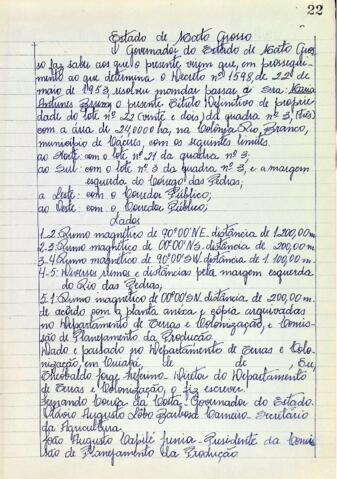 22
Estado de Mato Grosso
Governador do Estado de Mato Gros-
so faz saber aos que o presente virem que, em prossegui-
mento ao que determina o Decreto nº 1598, de 22 de
maio de 1953, resolveu mandar passar a Sra. Maria
Antunes o presente Titulo Definitivo de proprie-
dade do lote nº 22 (vinte e dois) da quadra nº 3, (três)
com a área de 24,0000 ha, na Colônia Rio Branco,
município de Cáceres, com os seguintes limites.
ao Norte: com o lote nº 21 da quadra nº 3;
ao Sul: com o lote nº 3 da quadra nº 3, e a margem
esquerda do Corrego das Pedras;
a Leste: com o Corredor Público;
ao Oeste: com o Corredor Público;
Lados
1.2: Rumo magnético de 90°00'NE. distância de 1.200,00m.
2.3: Rumo magnético de 00°00'NS. distância de 200,00m.
3.4: Rumo magnético de 90°00'SW. distância de 1.100,00m.
4-5: Diversos rumos e distâncias pela margem esquerda
do Rio das Pedras;
5.1: Rumo magnético de 00°00'SN. distância de 200,00m.
de acôrdo com a planta anexa e cópia arquivadas
no Departamento de Terras e Colonização, e Comis-
são de Planejamento da Produção.
Dado e passado no Departamento de Terras e Colo-
nização, em Cuiabá de de , Eu,
Theobaldo Jorge Diretor do Departamento
de Terras e Colonização, o fiz escrever.
Fernando Corrêa da Costa - Governador do Estado.
Otávio Augusto Lôbo Barbosa Camara - Secretário
da Agricultura
João Augusto Capilé Junior - Presidente da Comis-
são de Planejamento da Produção